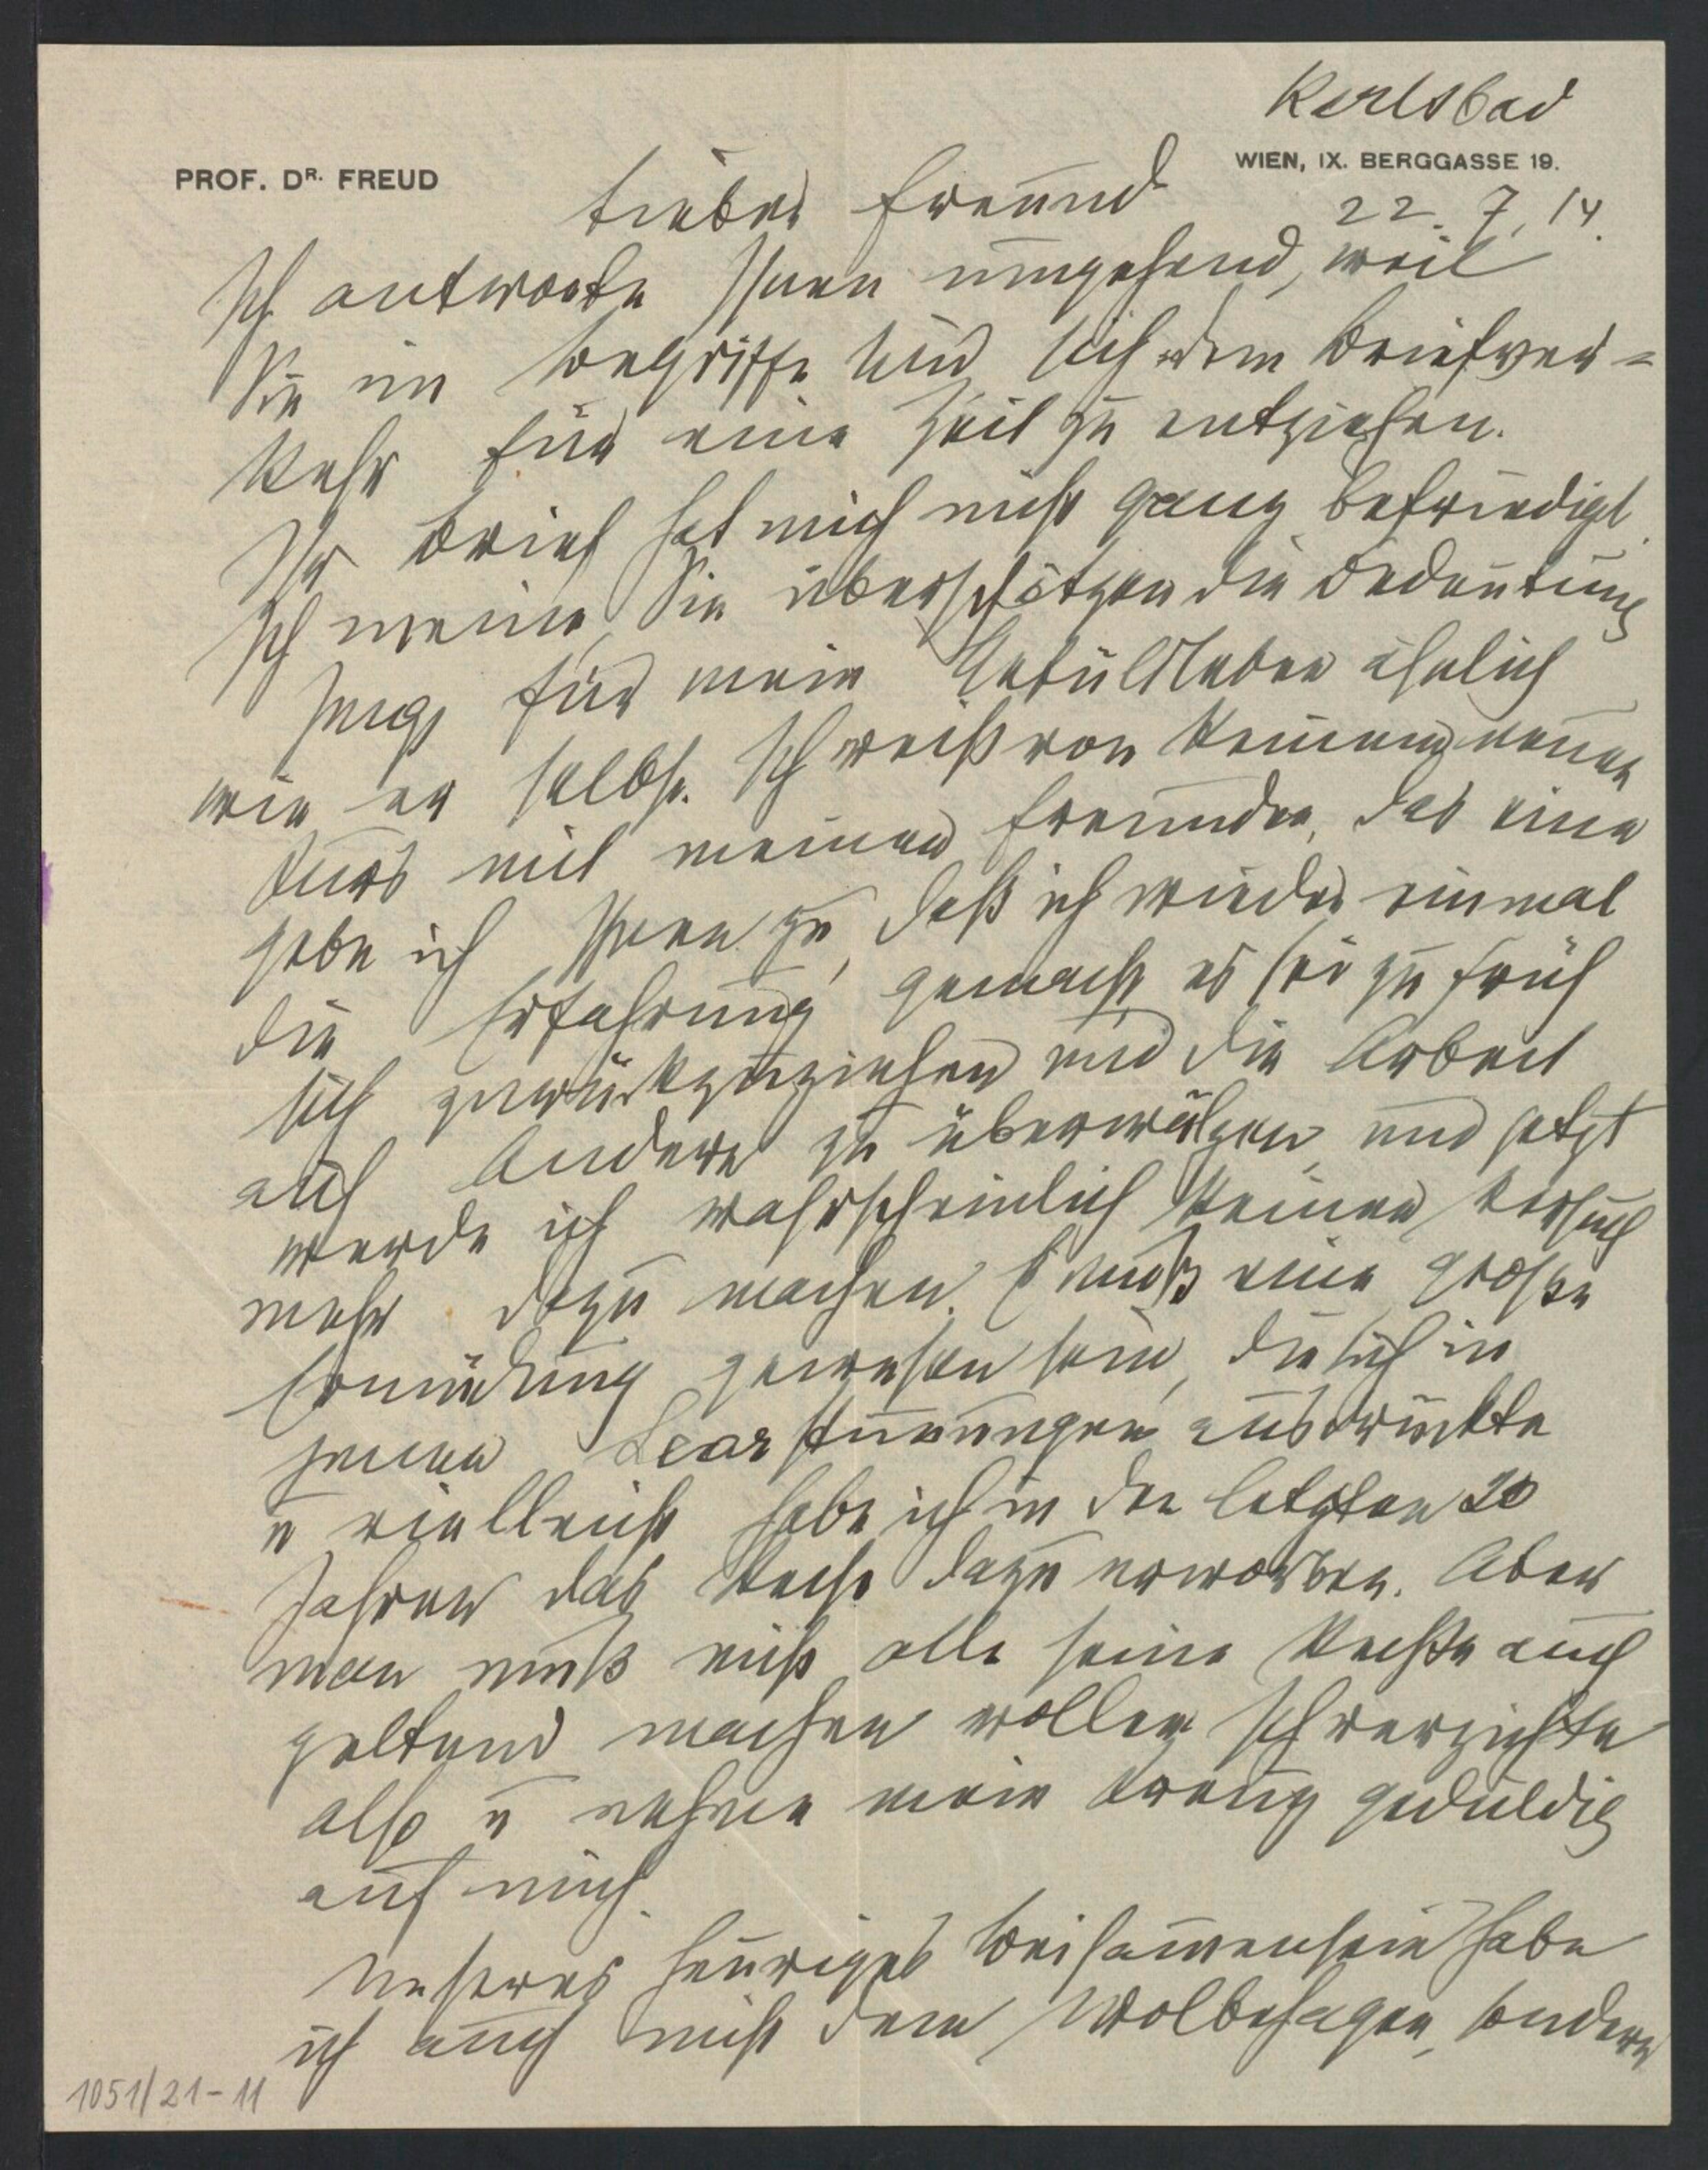 Karlsbad
PROF. DR. FREUD
WIEN, IX. BERGGASSE 19.
22. 7. 14.
Lieber Freund
Ich antworte Ihnen umgehend, weil
Sie im Begriffe sind sich dem Briefver-
kehr für eine Zeit zu entziehen.
Ihr Brief hat mich nicht ganz befriedigt.
Ich meine, Sie überschätzen die Bedeutung
Jungs für mein Gefülsleben ähnlich
wie er selbst. Ich weiß von keinem neuen
Kurs mit meinen Freunden. Das eine
gebe ich Ihnen zu, daß ich wieder einmal
die Erfahrung gemacht, es sei zu früh
sich zurückzuziehen und die Arbeit
auf Andere zu überwälzen, und jetzt
werde ich wahrscheinlich keinen Versuch
mehr dazu machen. Es muß eine große
Ermüdung gewesen sein, die sich in
jenen Learstimmungen ausdrückte
u vielleicht habe ich in den letzten 20
Jahren das Recht dazu erworben. Aber
man muß nicht alle seine Rechte auch
geltend machen wollen. Ich verzichte
also u nehme mein Kreuz geduldig
auf mich.
Unseres heuriges Beisammensein habe
ich auch nicht dem Wolbehagen, sondern
1051/21-11